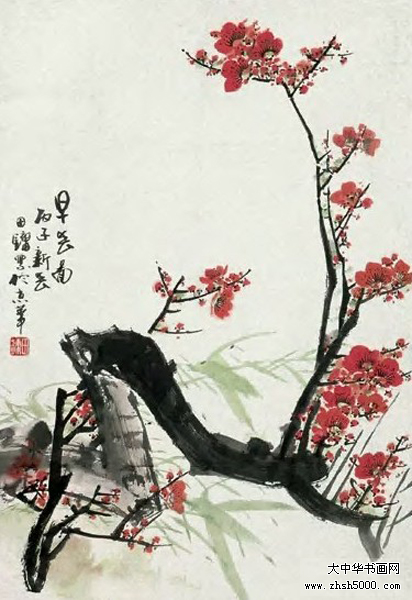 早春图
丙子新春
田镛写於京華
大中华书画网
www.zhsh5000.com